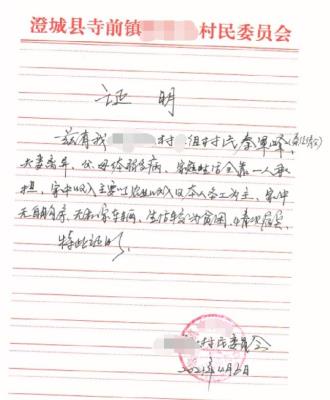 澄城县寺前镇 村民委员会
证明
兹有我 村 组村民秦军峰
夫妻离异,父母体弱多病,家庭生活全靠一人承
担,家中收入主要以农业收入及本人务工为主,家中
无自购房,无私家车辆,生活较为贫困,情况属实。
特此证明
村民委员会
2021年4月6日